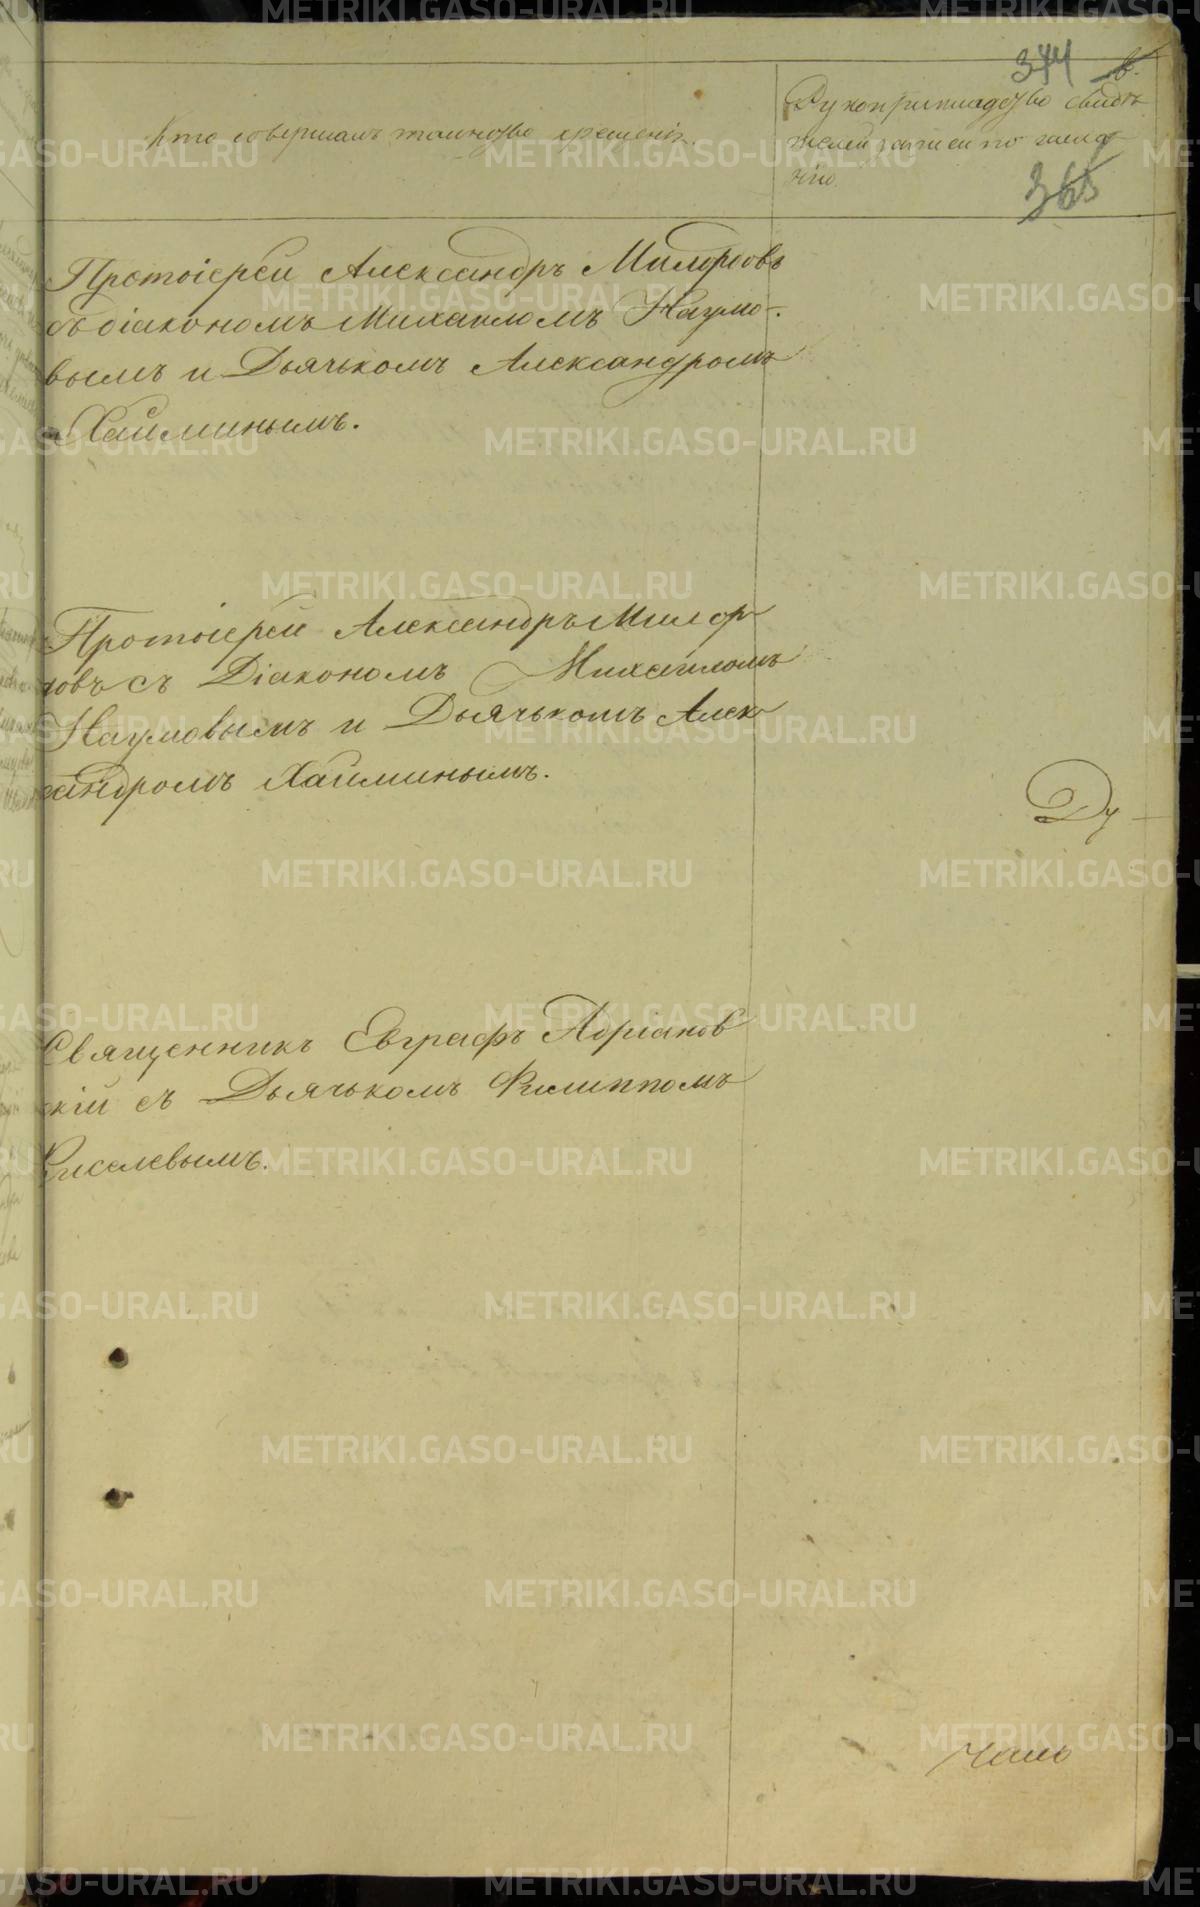 344
Кто совершалъ таинство крещенія.
Рукоприкладство свидѣ
телей записи по жела
нію.
365
Протоіерей Александръ
съ діакономъ Михаиломъ Наумо-
вымъ и Дьячькомъ Александромъ
Хайминымъ.
Протоіерей Александръ
съ Діакономъ Михаиломъ
Наумовымъ и Дьячькомъ Алек
сандромъ Хайминымъ.
Ду
Священникъ Евграфъ Адріанов
скій съ Дьячькомъ Филиппомъ
Киселевымъ.
METRIKI.GASO-URAL.RU